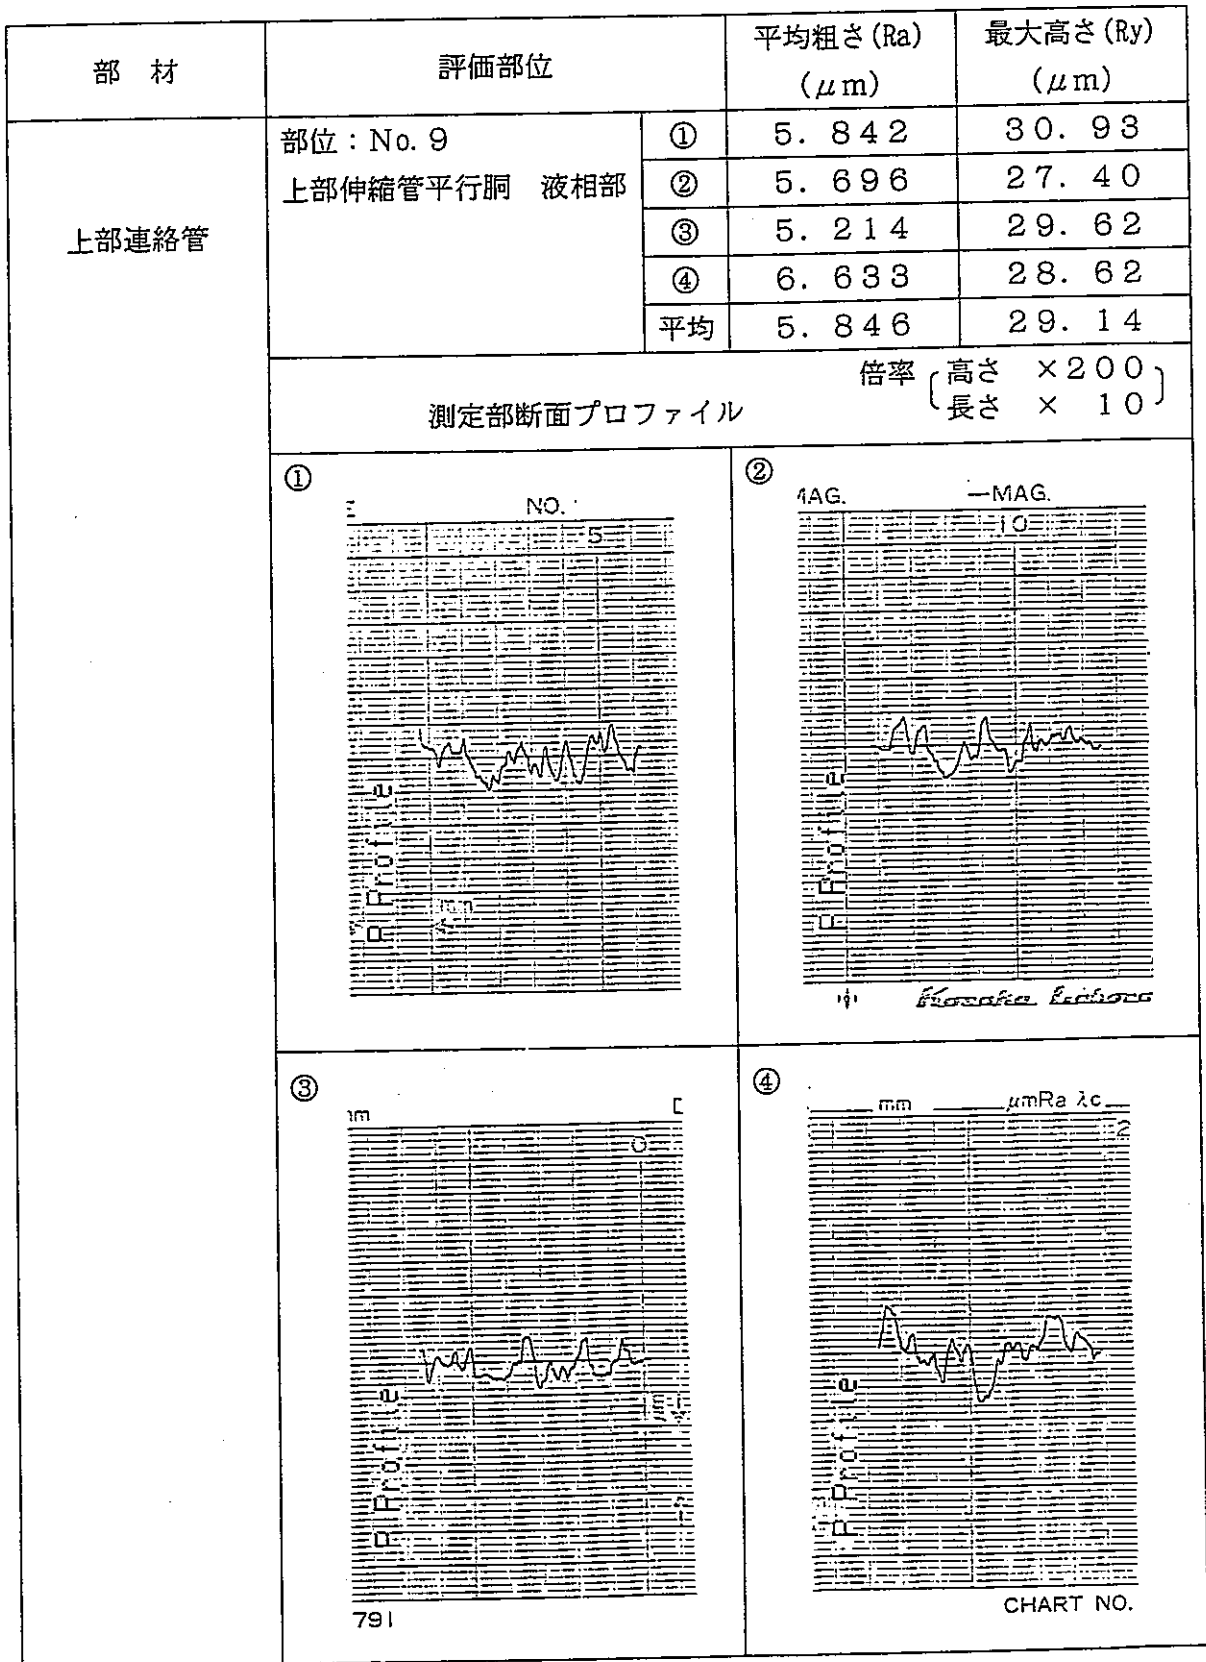 部 材
評価部位
平均粗さ(Ra)
(μm)
最大高さ(Ry)
(μm)
上部連絡管
部位：No. 9
上部伸縮管平行胴 液相部
① 5. 842 30. 93
② 5. 696 27. 40
③ 5. 214 29. 62
④ 6. 633 28. 62
平均 5. 846 29. 14
測定部断面プロファイル
倍率
高さ ×200
長さ × 10
①
NO.
5
P Profile
②
MAG. —MAG.
10
P Profile
③
0
P Profile
791
④
mm μmRa λc
2
P Profile
CHART NO.